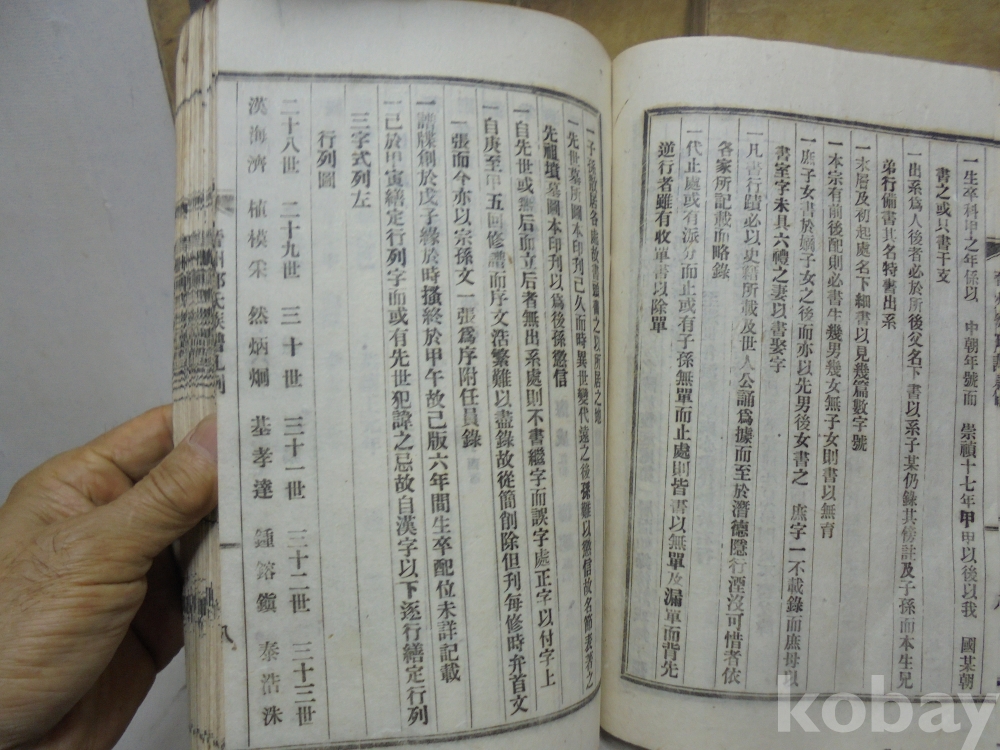 一生卒科甲之年係以 中朝年號而 崇禎十七年甲申以後以我 國某朝
書之或只書干支
一出系爲人後者必於所後父名下書以系子某仍錄其傍註及子孫而本生兄
弟行備書其名特書出系
一末層及初起處名下細書以見幾篇數字號
一本宗有前後配則必書生幾男幾女無子女則書以無育
一庶子女書於嫡子女之後而亦以先男後女書之 庶字一不載錄而庶母以
書室字未具六禮之妻以書娶字
一凡書行蹟必以史籍所載及世人公誦爲據而至於潛德隱行湮沒可惜者依
各家所記載而略錄
一代止處或有派分而止或有子孫無單而止處則皆書以無單及漏單而背先
逆行者雖有收單書以除單
一子孫散居各處故書以所居之地
一先世墓所圖本印刊已久而時異世變代遠之後孫難以懲信故名
先祖墳墓圖本印刊以爲後孫懲信
一自先世或無后而立后者無出系處則不書繼字而誤字處正字以付字上
一自庚至甲五回修譜而序文浩繁難以盡錄故從簡創除但刊每修時弁首文
一張而今亦以宗孫文一張爲序附任員錄
一譜牒創於戊子緣於時搔終於甲午故己版六年間生卒配位未詳記載
一己於甲寅繕定行列字而或有先世犯諱之忌故自漢字以下逐行繕定行列
三字式列左
行列圖
二十八世 二十九世 三十世 三十一世 三十二世 三十三世
漢海濟 植模宋 然炳炯 基孝達 鍾鎔鎭 泰浩洙
八
kobay